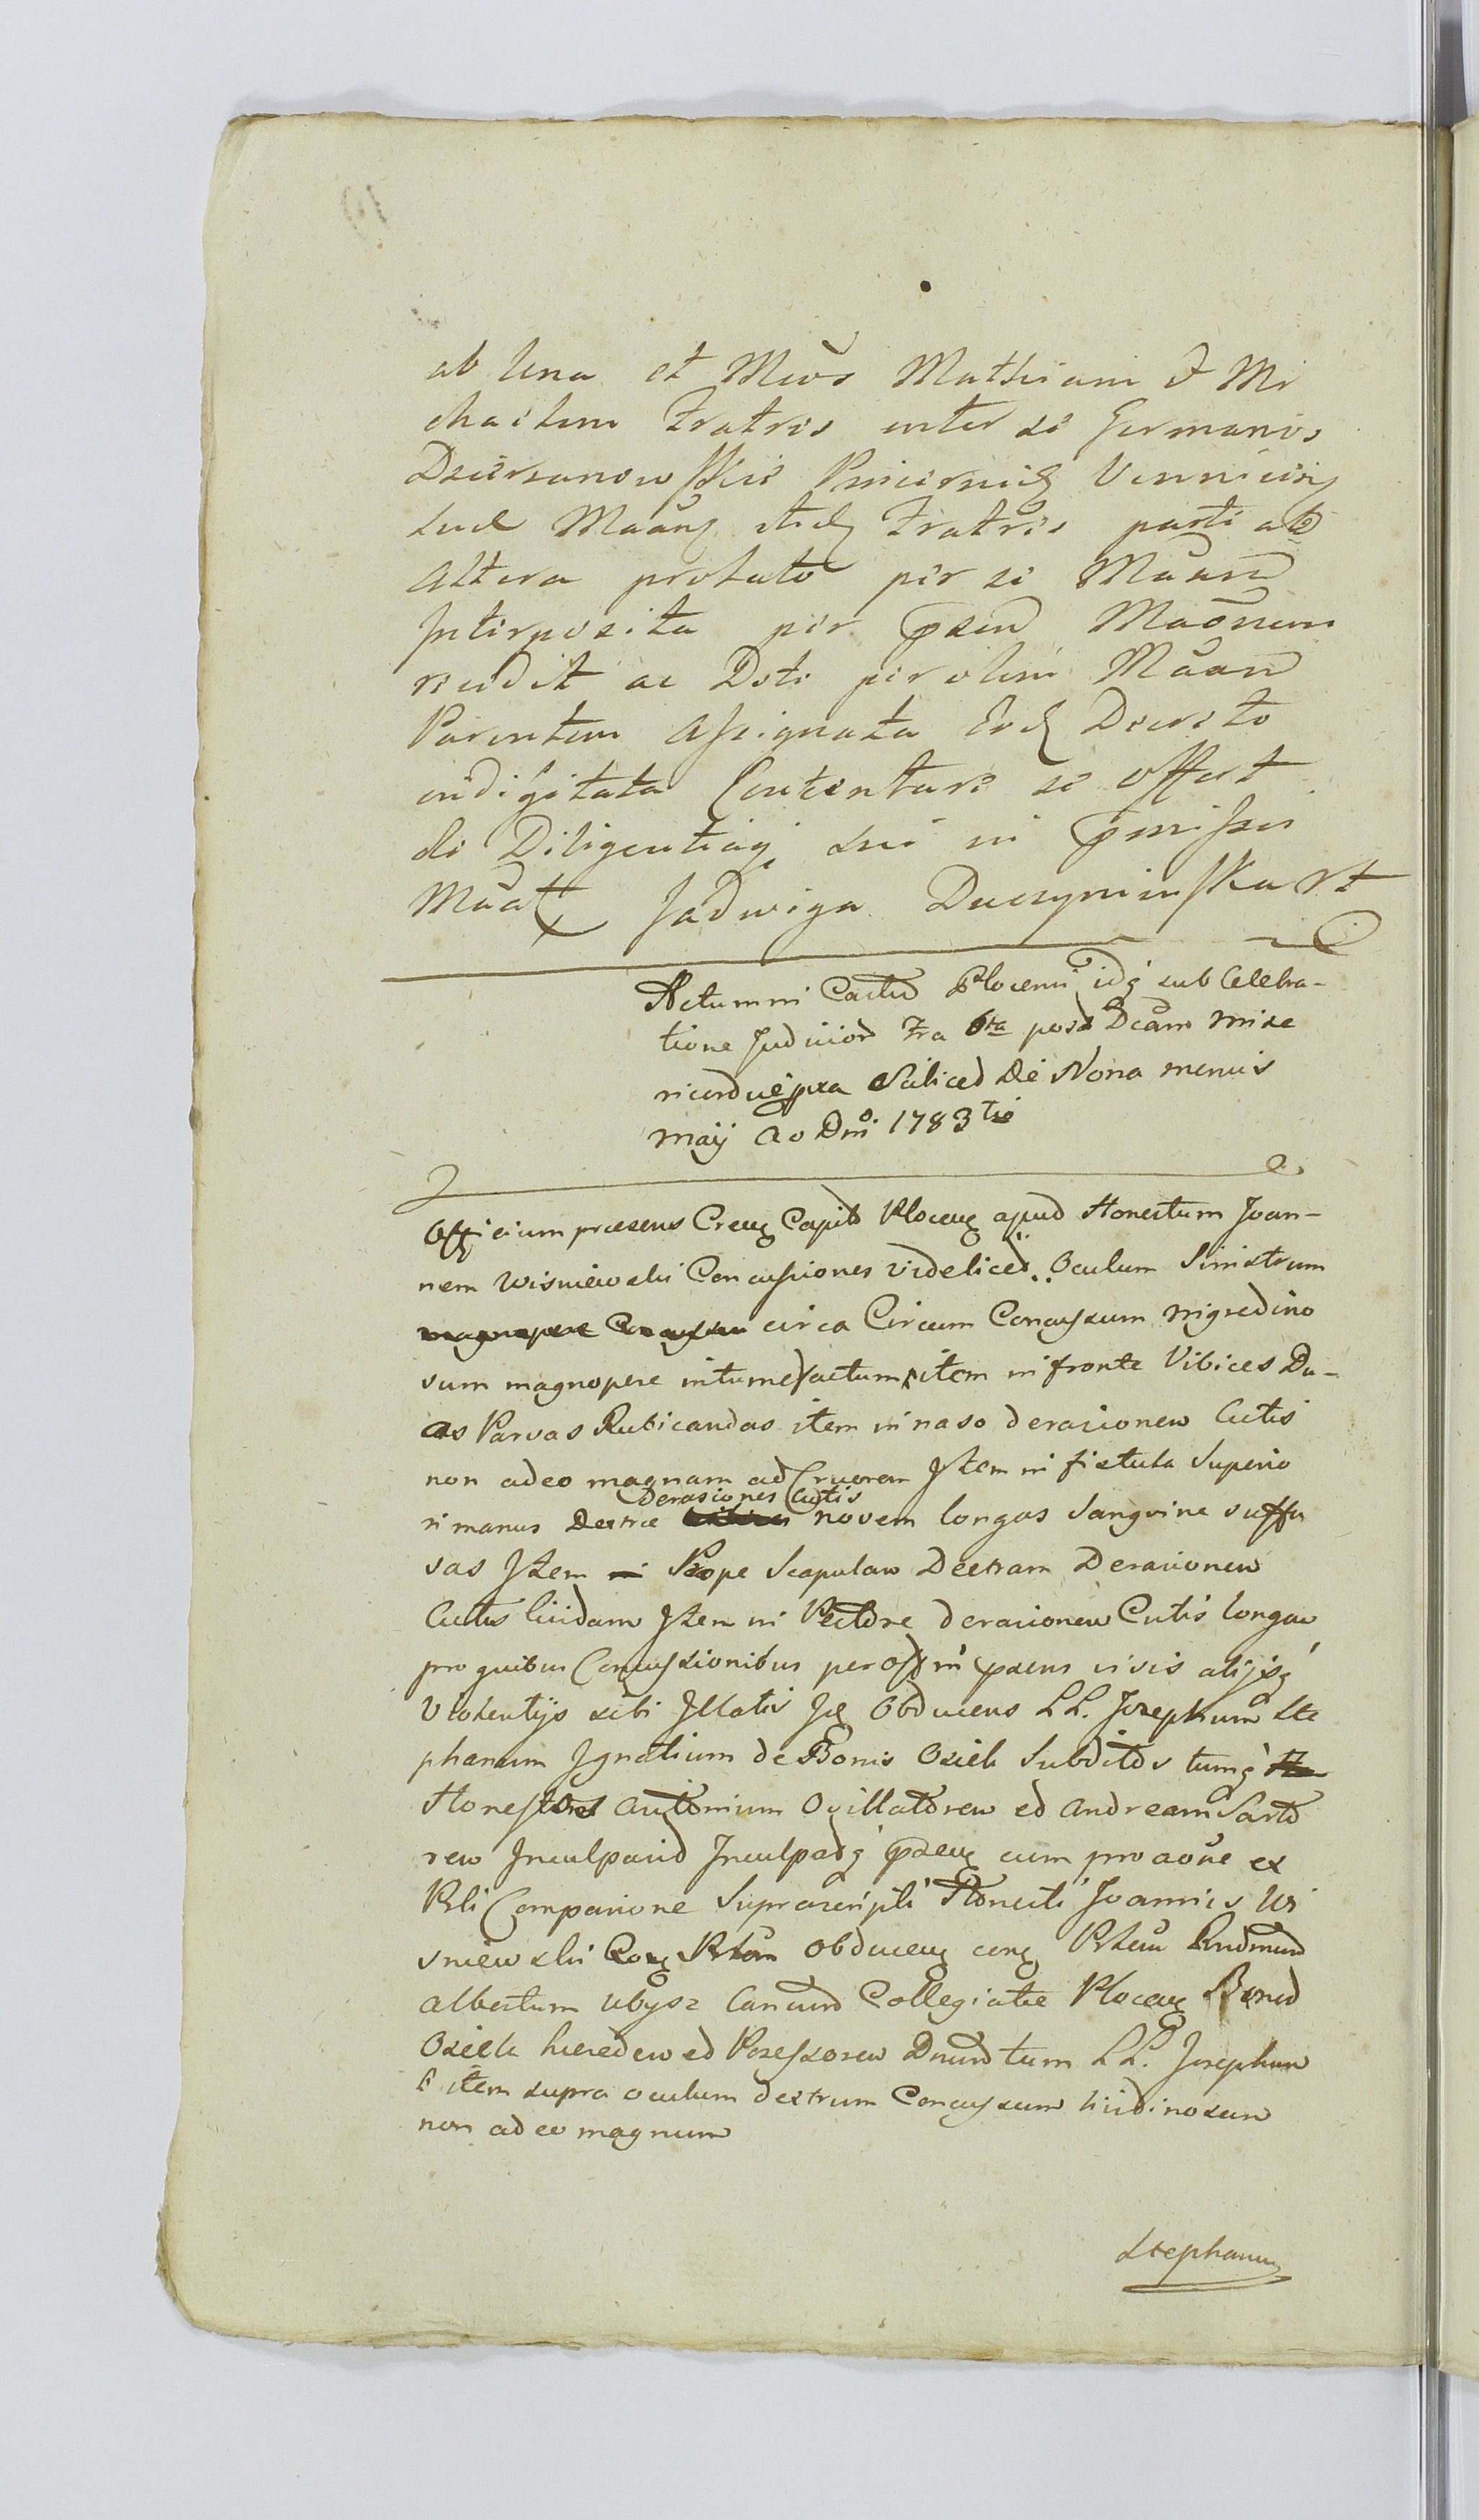 ab Una et Mcos Mathiam & Mi
chaelem Fratres inter se Germanos
Dzierzanowskie
suae Maang Fratres parti ab
Altera prolato per se Maan
Interposita per psen Maonem
reddit ac Doti per olim Maan
Parentem Assignata Eod Decreto
indigitata Contentari se offert
de Diligentia sui in pmissis
Maat Jadwiga Duczyminska Rt
Actum in Castro Plocensi idq sub Celebra-
tione Judicior Fra 6ta post Dcam Mise
ricordiae pxa Scilicet Die Nona mensis
Maij Ao Dni 1783tio
Officium praesens Creng Capit Plocen apud Honestum Joan-
nem Wisniewski Concussiones videlicet Oculum Sinistrum
magnopere Concussum circa Circum Concussum nigredino
sum magnopere intumefactum item in fronte Vibices Du-
as Parvas Rubicandas item in naso derasionem Cutis
non adeo magnam ad Cruorem Item in fistula Superio
Derasiones Cutis
ri manus Dextrae novem longas Sanguine suffu
sas Item Prope Scapulam Dextram Derasionem
Cutis lividam Item in Pectore derasionem Cutis longam
pro quibus Concussionibus per Off psens visis alijsq
Violentijs sibi Illatis Obducens LL. Josephum Ste
phanum Ignatium de Bonis Osiek Subditos tumq
Honestos Antonium Ovillatorem et Andream Sarto
rem Inculpavit Inculpatq psens cum pro aone ex
Rli Comparione Suprascripti Honesti Joannis Wi
sniewski Obducen Rndum
Albertum Canum Collegiatae Plocen Bonor
Osiek haeredem et Possessorem Dnum tum LL. Josephum
item supra oculum dextrum Concussum lividinosum
non adeo magnum
Stephanum